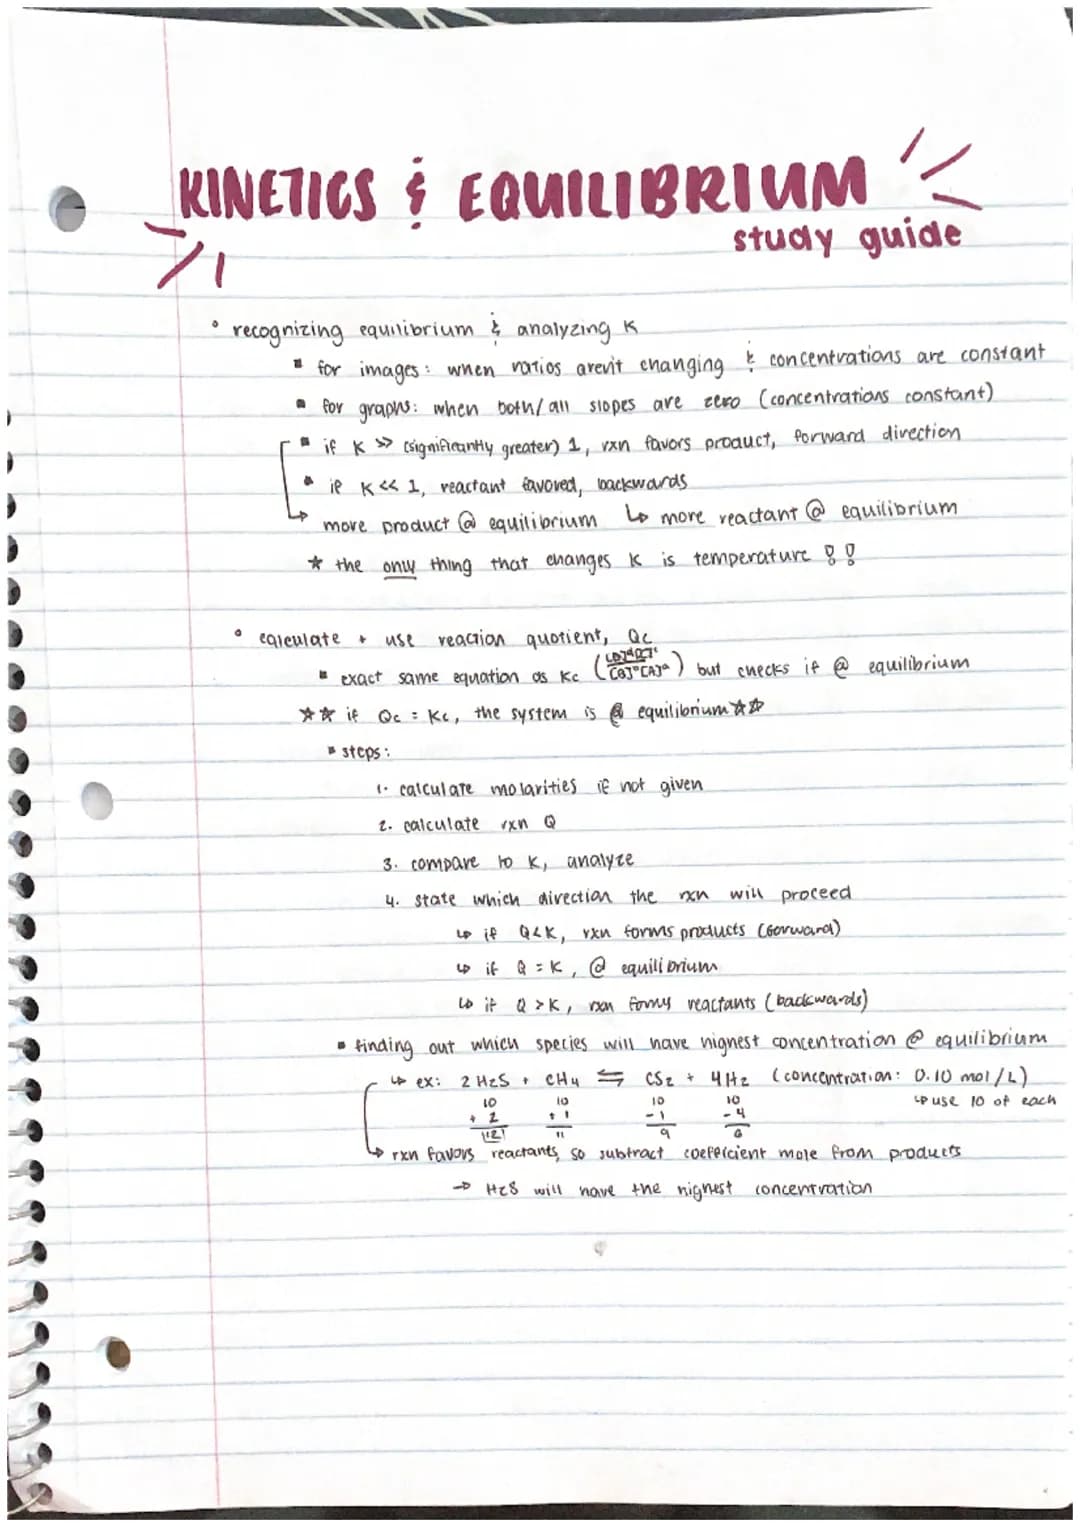 KINETICS & EQUILIBRIUM
study guide
° recognizing equilibrium & analyzing K
▪ for images: when ratios aren't changing & concentrations are constant
▪ for graphs: when both/all slopes are zero (concentrations constant)
▪ if K >> (significantly greater) 1, rxn favors product, forward direction
▪ if K << 1, reactant favored, backwards
↳ more product @ equilibrium ↳ more reactant @ equilibrium
★ the only thing that changes K is temperature !!
° calculate + use reaction quotient, Qc
▪ exact same equation as Kc ([D]ᵈ[C]ᶜ/[B]ᵇ[A]ᵃ) but checks if @ equilibrium
★★ if Qc = Kc, the system is @ equilibrium ★★
▪ steps:
1. calculate molarities if not given
2. calculate rxn Q
3. compare to K, analyze
4. state which direction the rxn will proceed
↳ if Q<K, rxn forms products (forward)
↳ if Q = K, @ equilibrium
↳ if Q >K, rxn forms reactants (backwards)
▪ finding out which species will have highest concentration @ equilibrium
↳ ex: 2 H₂S + CH₄ ⇌ CS₂ + 4H₂ (concentration: 0.10 mol/L)
10 10 10 10 ↳ use 10 of each
+ 2 + 1 - 1 - 4
12 11 9 6
↳ rxn favors reactants, so subtract coefficient mole from products
→ H₂S will have the highest concentration